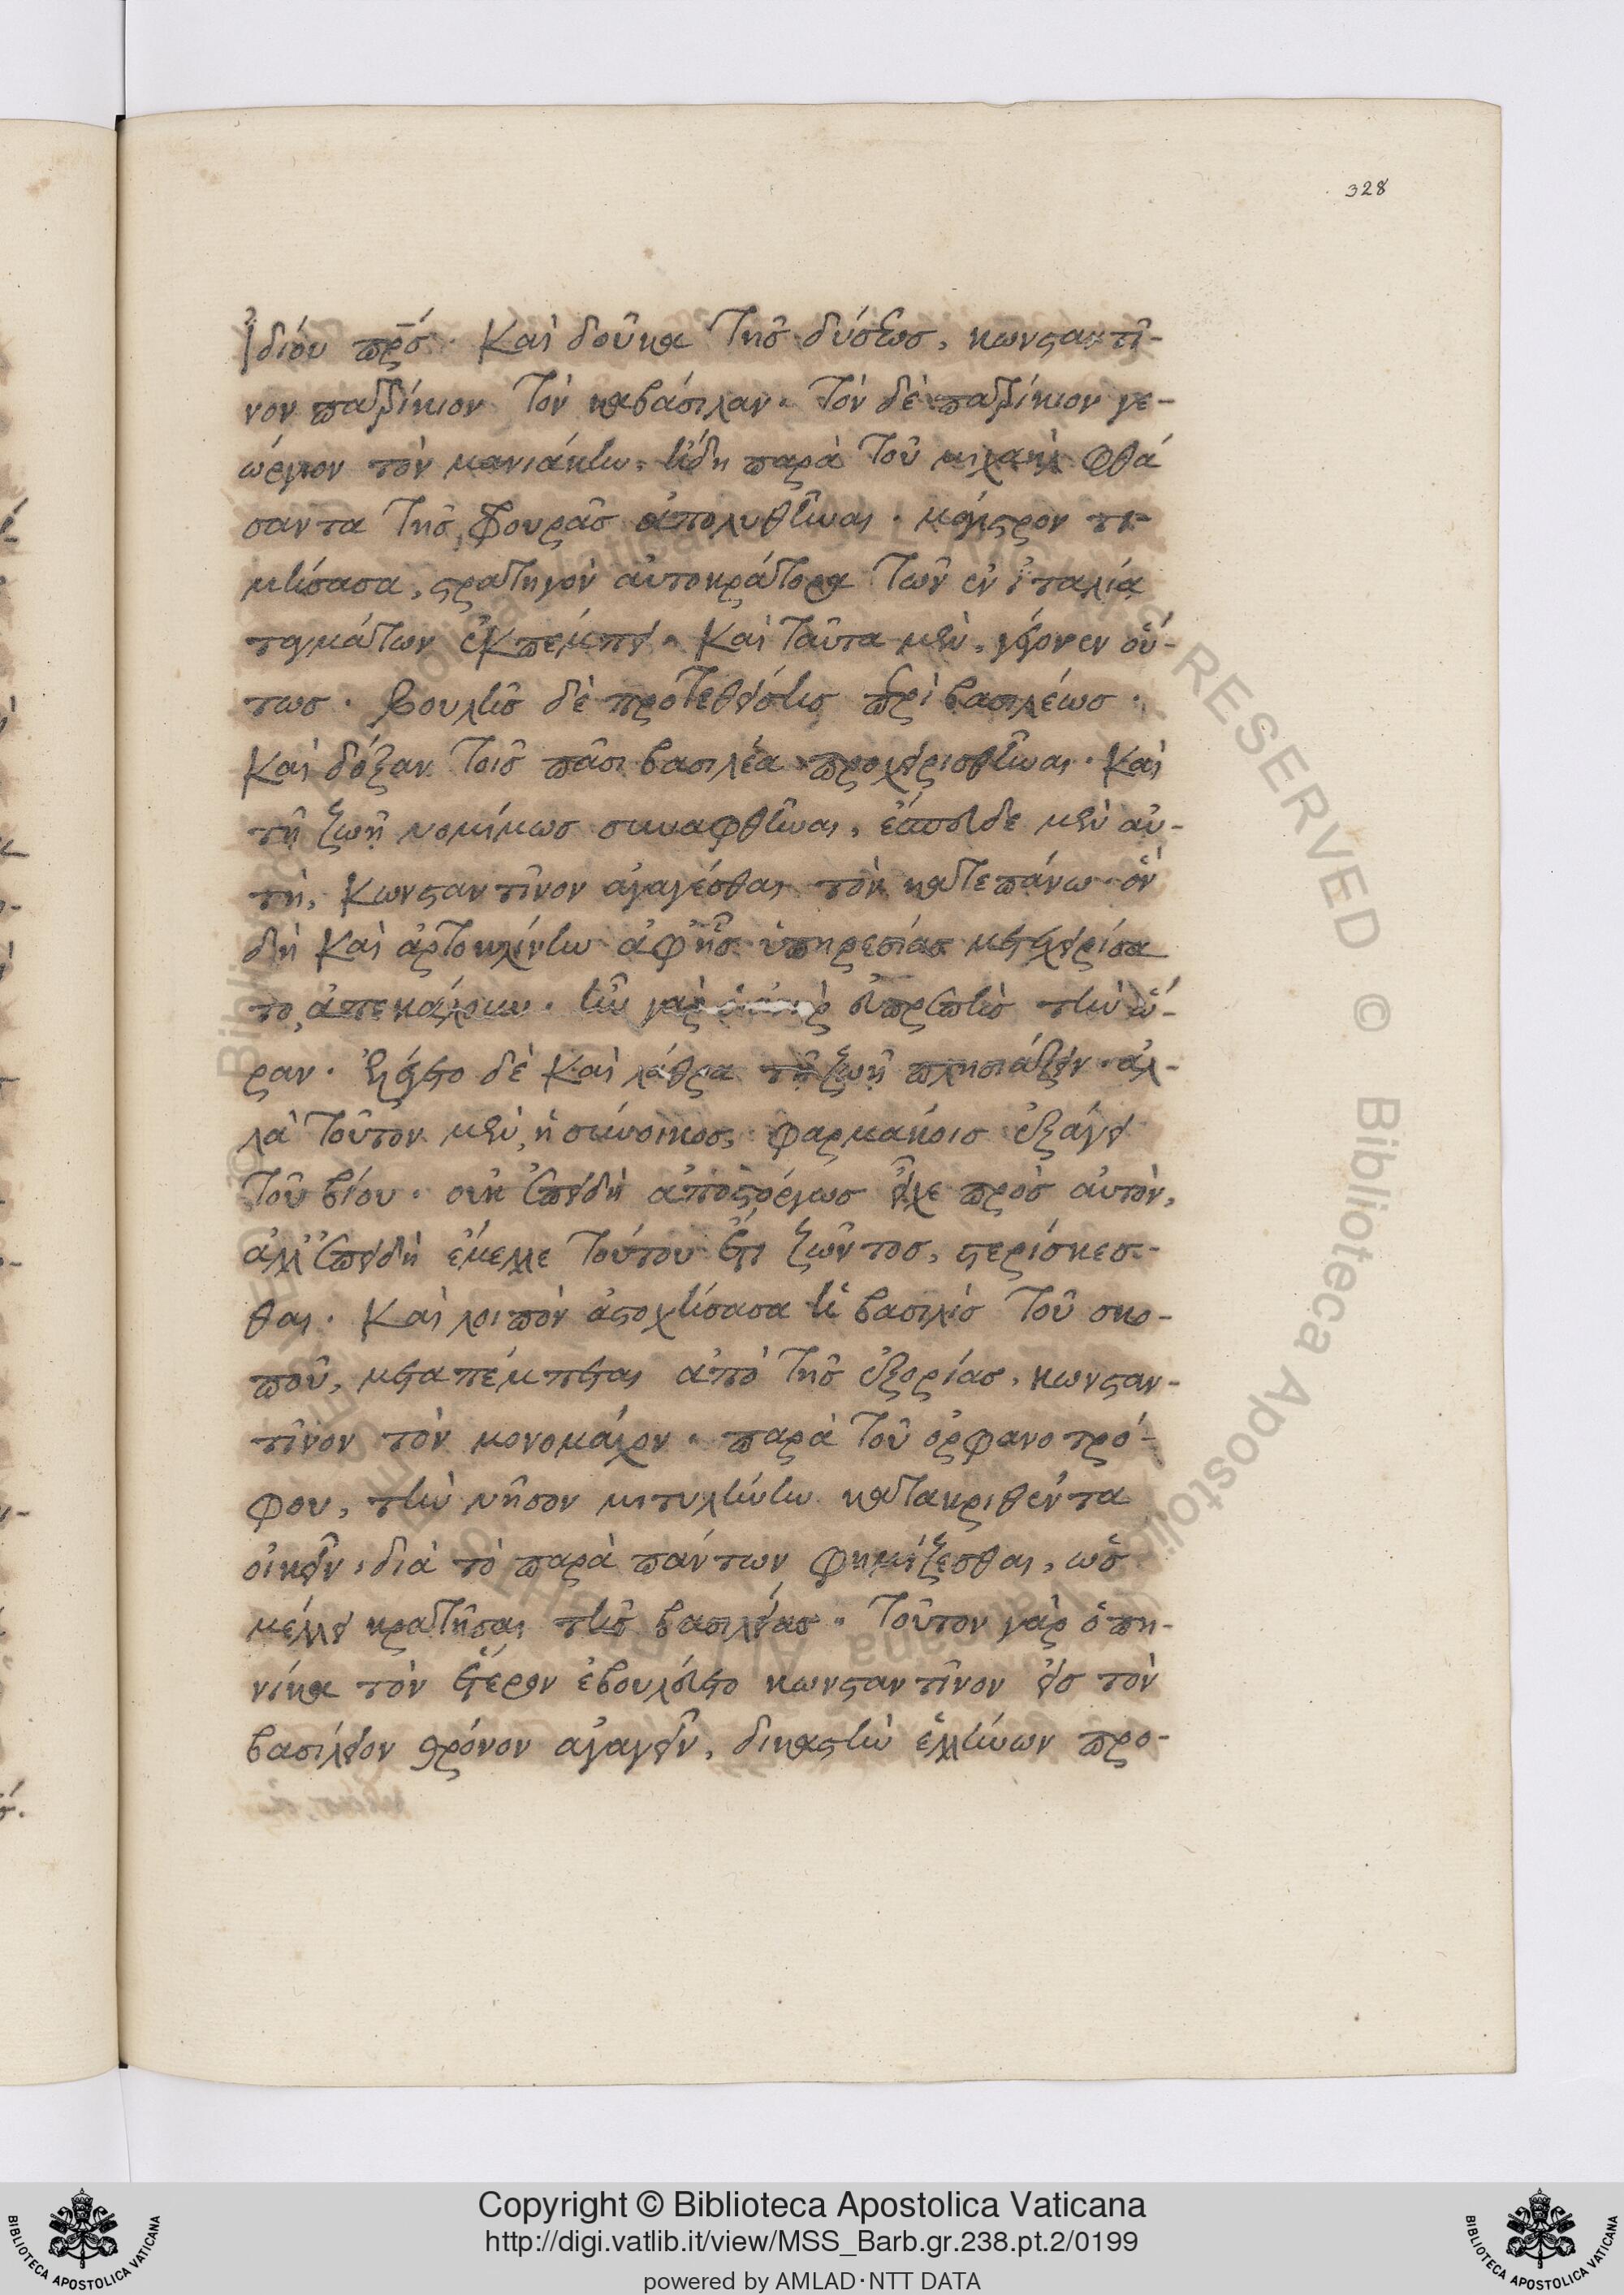 328
ἰδίου πρς. καὶ δοῦκα τῆς δύσεως, κωνσταντῖ-
νον πατρίκιον τὸν καβάσιλαν. τὸν δὲ πατρίκιον γε-
ώργιον τὸν μανιάκην, ἤδη παρὰ τοῦ μιχαὴλ φθά
σαντα τῆς φουρᾶς ἀπολυθῆναι. μάγιστρον τι-
μήσασα, στρατηγὸν αὐτοκράτορα τῶν ἐν ἰταλία
ταγμάτων ἐκπέμπει. καὶ ταῦτα μὲν, γέγονεν οὕ-
τως. βουλῆς δὲ προτεθείσης περὶ βασιλέως.
καὶ δόξαν τοῖς πᾶσι βασιλέα προχειρισθῆναι. καὶ
τῇ ζωῇ νομίμως συναφθῆναι, ἔσπευδε μὲν αὐ-
τὴ, κωνσταντῖνον ἀγαγέσθαι τὸν κατεπάνω ὃν
δὴ καὶ ἀρτοκλίνην ἀφ' ἧς ὑπηρεσίας μετεχειρίσα
το, ἀπεκάλουν. ἦν γὰρ ὁ ἀνὴρ εὐπρεπὴς τὴν ὥ-
ραν. ἐλέγετο δὲ καὶ λάθρα τῇ ζωῇ πλησιάζειν. ἀλ-
λὰ τοῦτον μὲν, ἡ σύνοικος, φαρμάκοις ἐξάγει
τοῦ βίου. οὐκ ἐπειδὴ ἀποστόργως εἶχε πρὸς αὐτὸν,
ἀλλ' ἐπειδὴ ἔμελλε τούτου ἔτι ζῶντος, στερίσκεσ-
θαι. καὶ λοιπὸν ἀστοχήσασα ἡ βασιλὶς τοῦ σκο-
ποῦ, μεταπέμπεται ἀπὸ τῆς ἐξορίας, κωνσταν-
τῖνον τὸν μονομάχον. παρὰ τοῦ ὀρφανοτρό-
φου, τὴν νῆσον μιτυλήνην κατακριθέντα
οἰκεῖν, διὰ τὸ παρὰ πάντων φημίζεσθαι, ὡς
μέλλει κρατῆσαι τῆς βασιλείας. τοῦτον γὰρ ὁπη-
νίκα τὸν ἕτερον ἐβουλεύετο κωνσταντῖνον εἰς τὸν
βασίλειον θρόνον ἀγαγεῖν, δικαστὴν ἑλλήνων προ-
Copyright © Biblioteca Apostolica Vaticana
http://digi.vatlib.it/view/MSS_Barb.gr.238.pt.2/0199
powered by AMLAD·NTT DATA
BIBLIOTECA APOSTOLICA VATICANA
BIBLIOTECA APOSTOLICA VATICANA